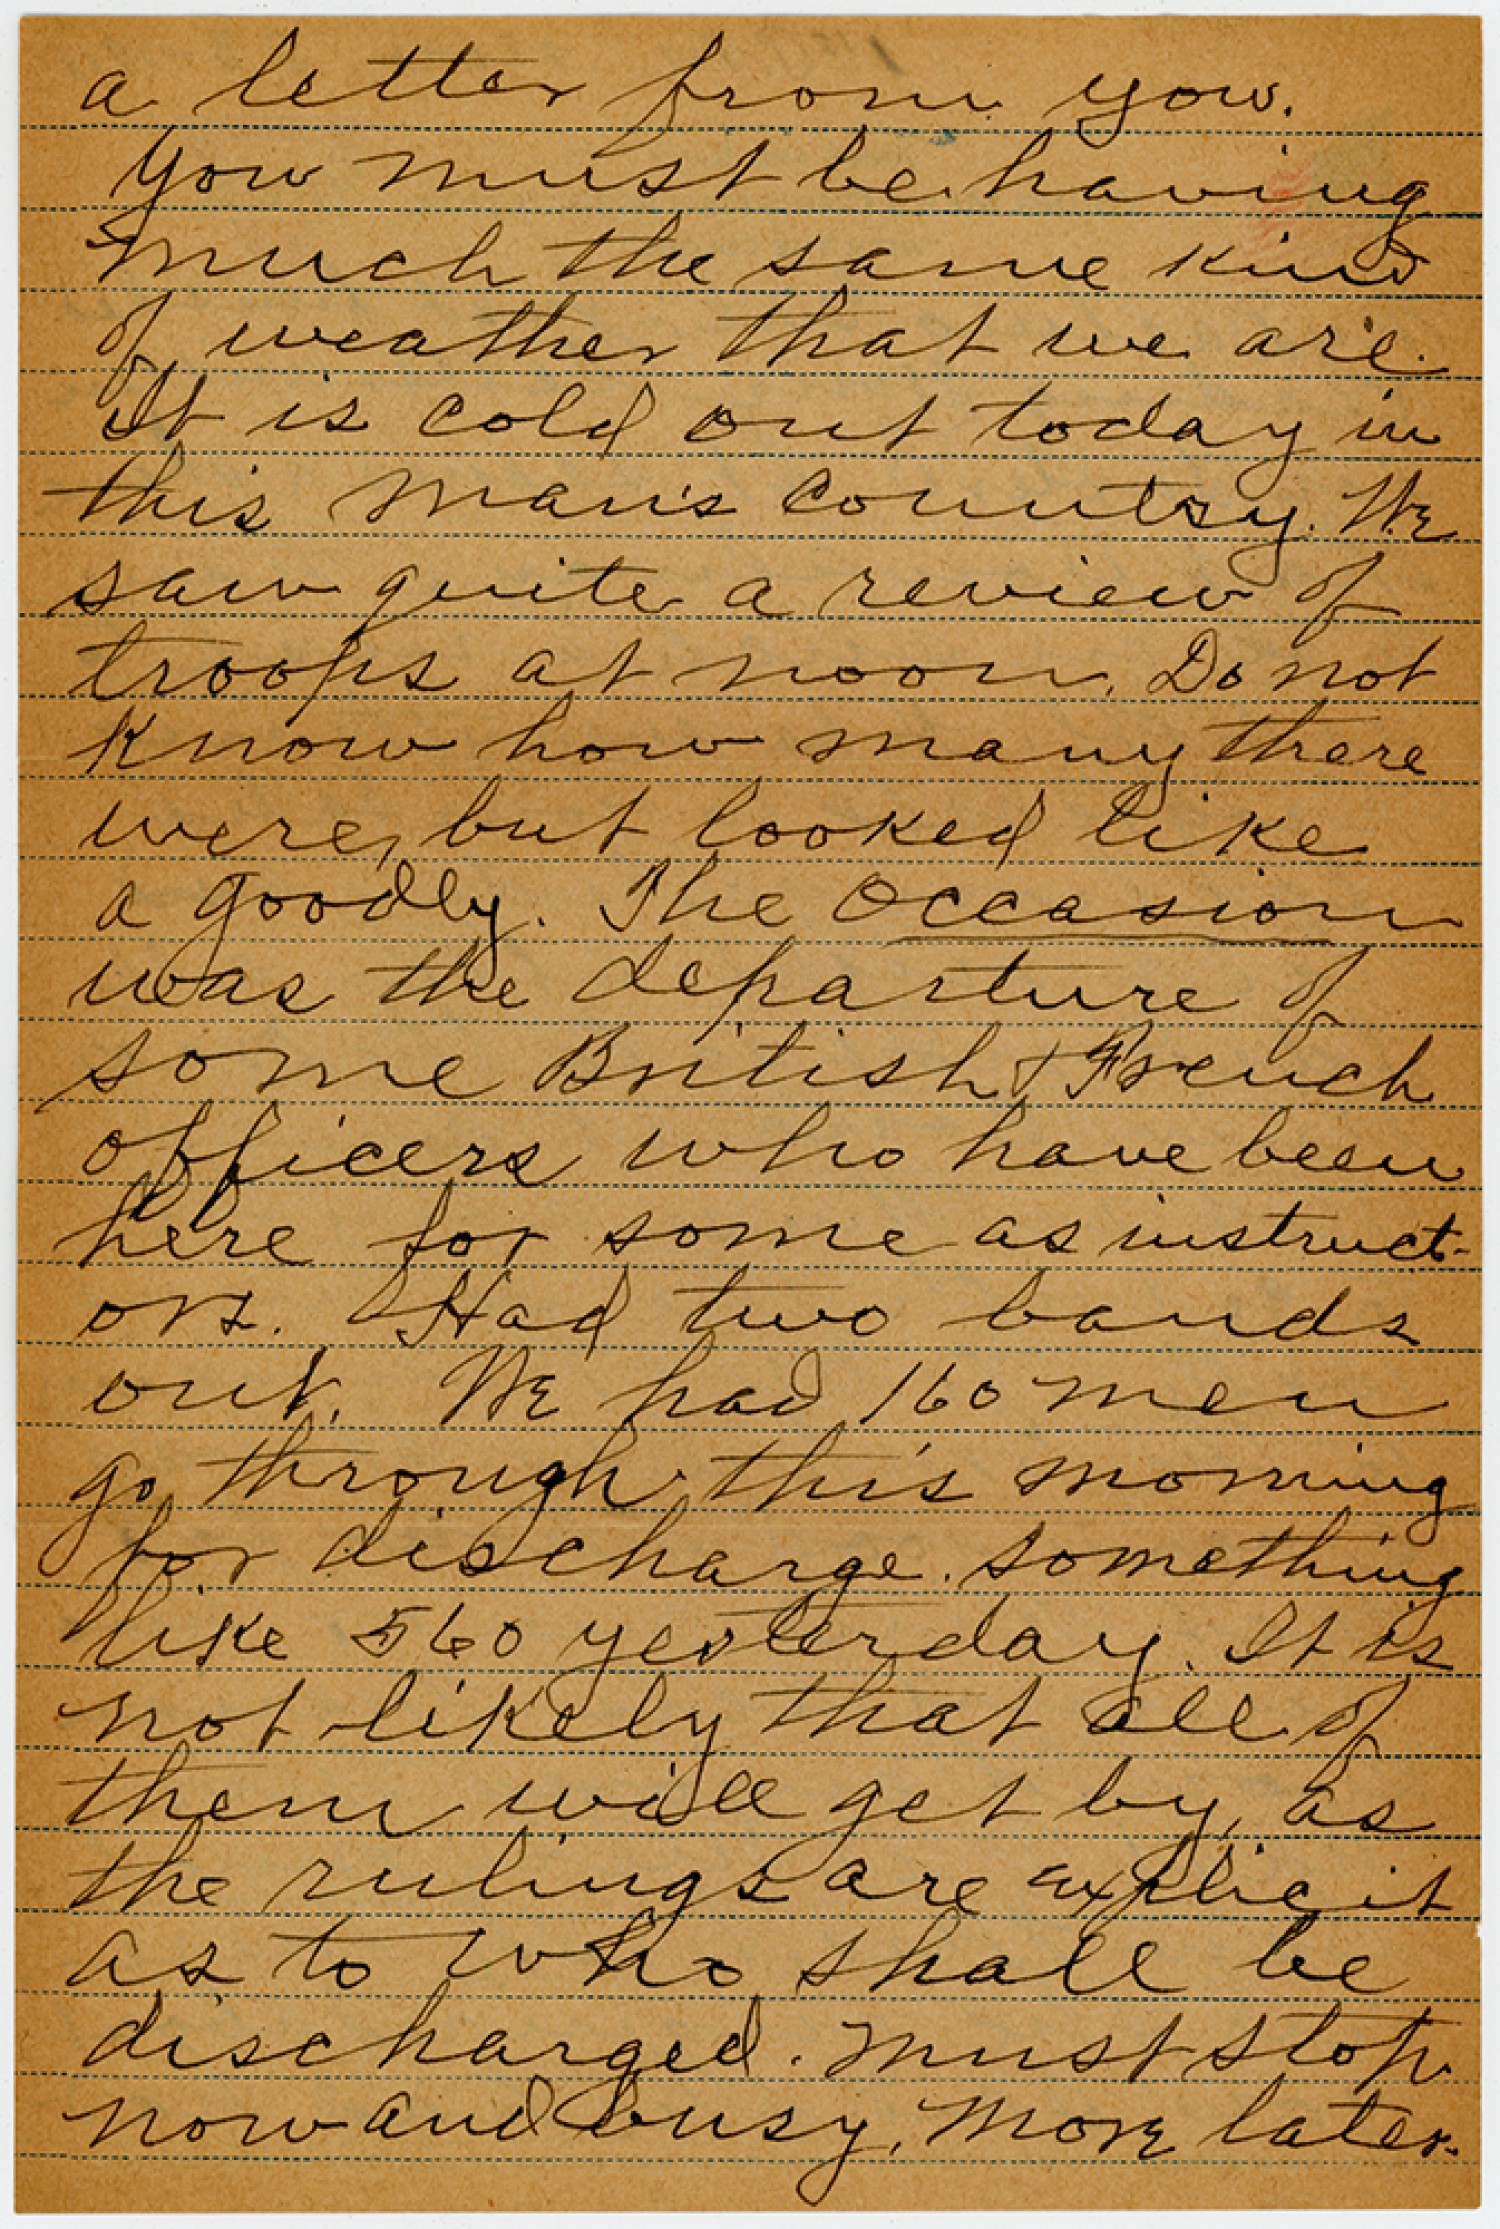 a letter from you.
You must be having
much the same kind
of weather that we are.
It is cold out today in
this man's country. We
saw quite a review of
troops at noon. Do not
know how many there
were, but looked like
a goodly. The occasion
was the departure of
some British & French
officers who have been
here for some as instruct-
ors. Had two bands
out. We had 160 men
go through this morning
for discharge. Something
like 560 yesterday. It is
not likely that all of
them will get by, as
the rulings are explicit
as to who shall be
discharged. Must stop
now and busy. More later.